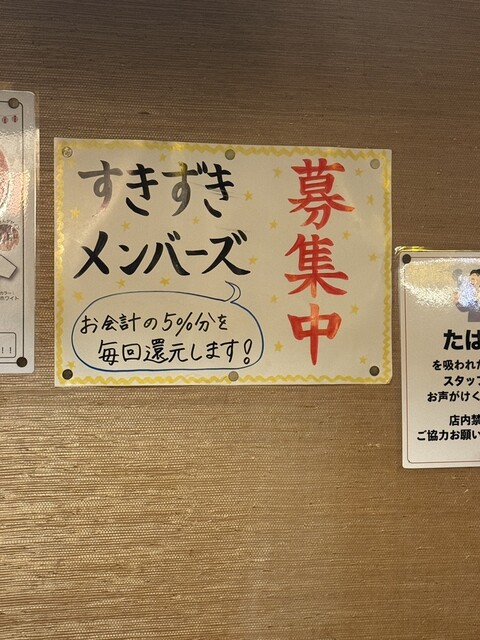 すきずき
メンバーズ
お会計の5%分を
毎回還元します!
募集中
たば
を吸われた
スタッフ
お声がけく
店内禁
ご協力お願い